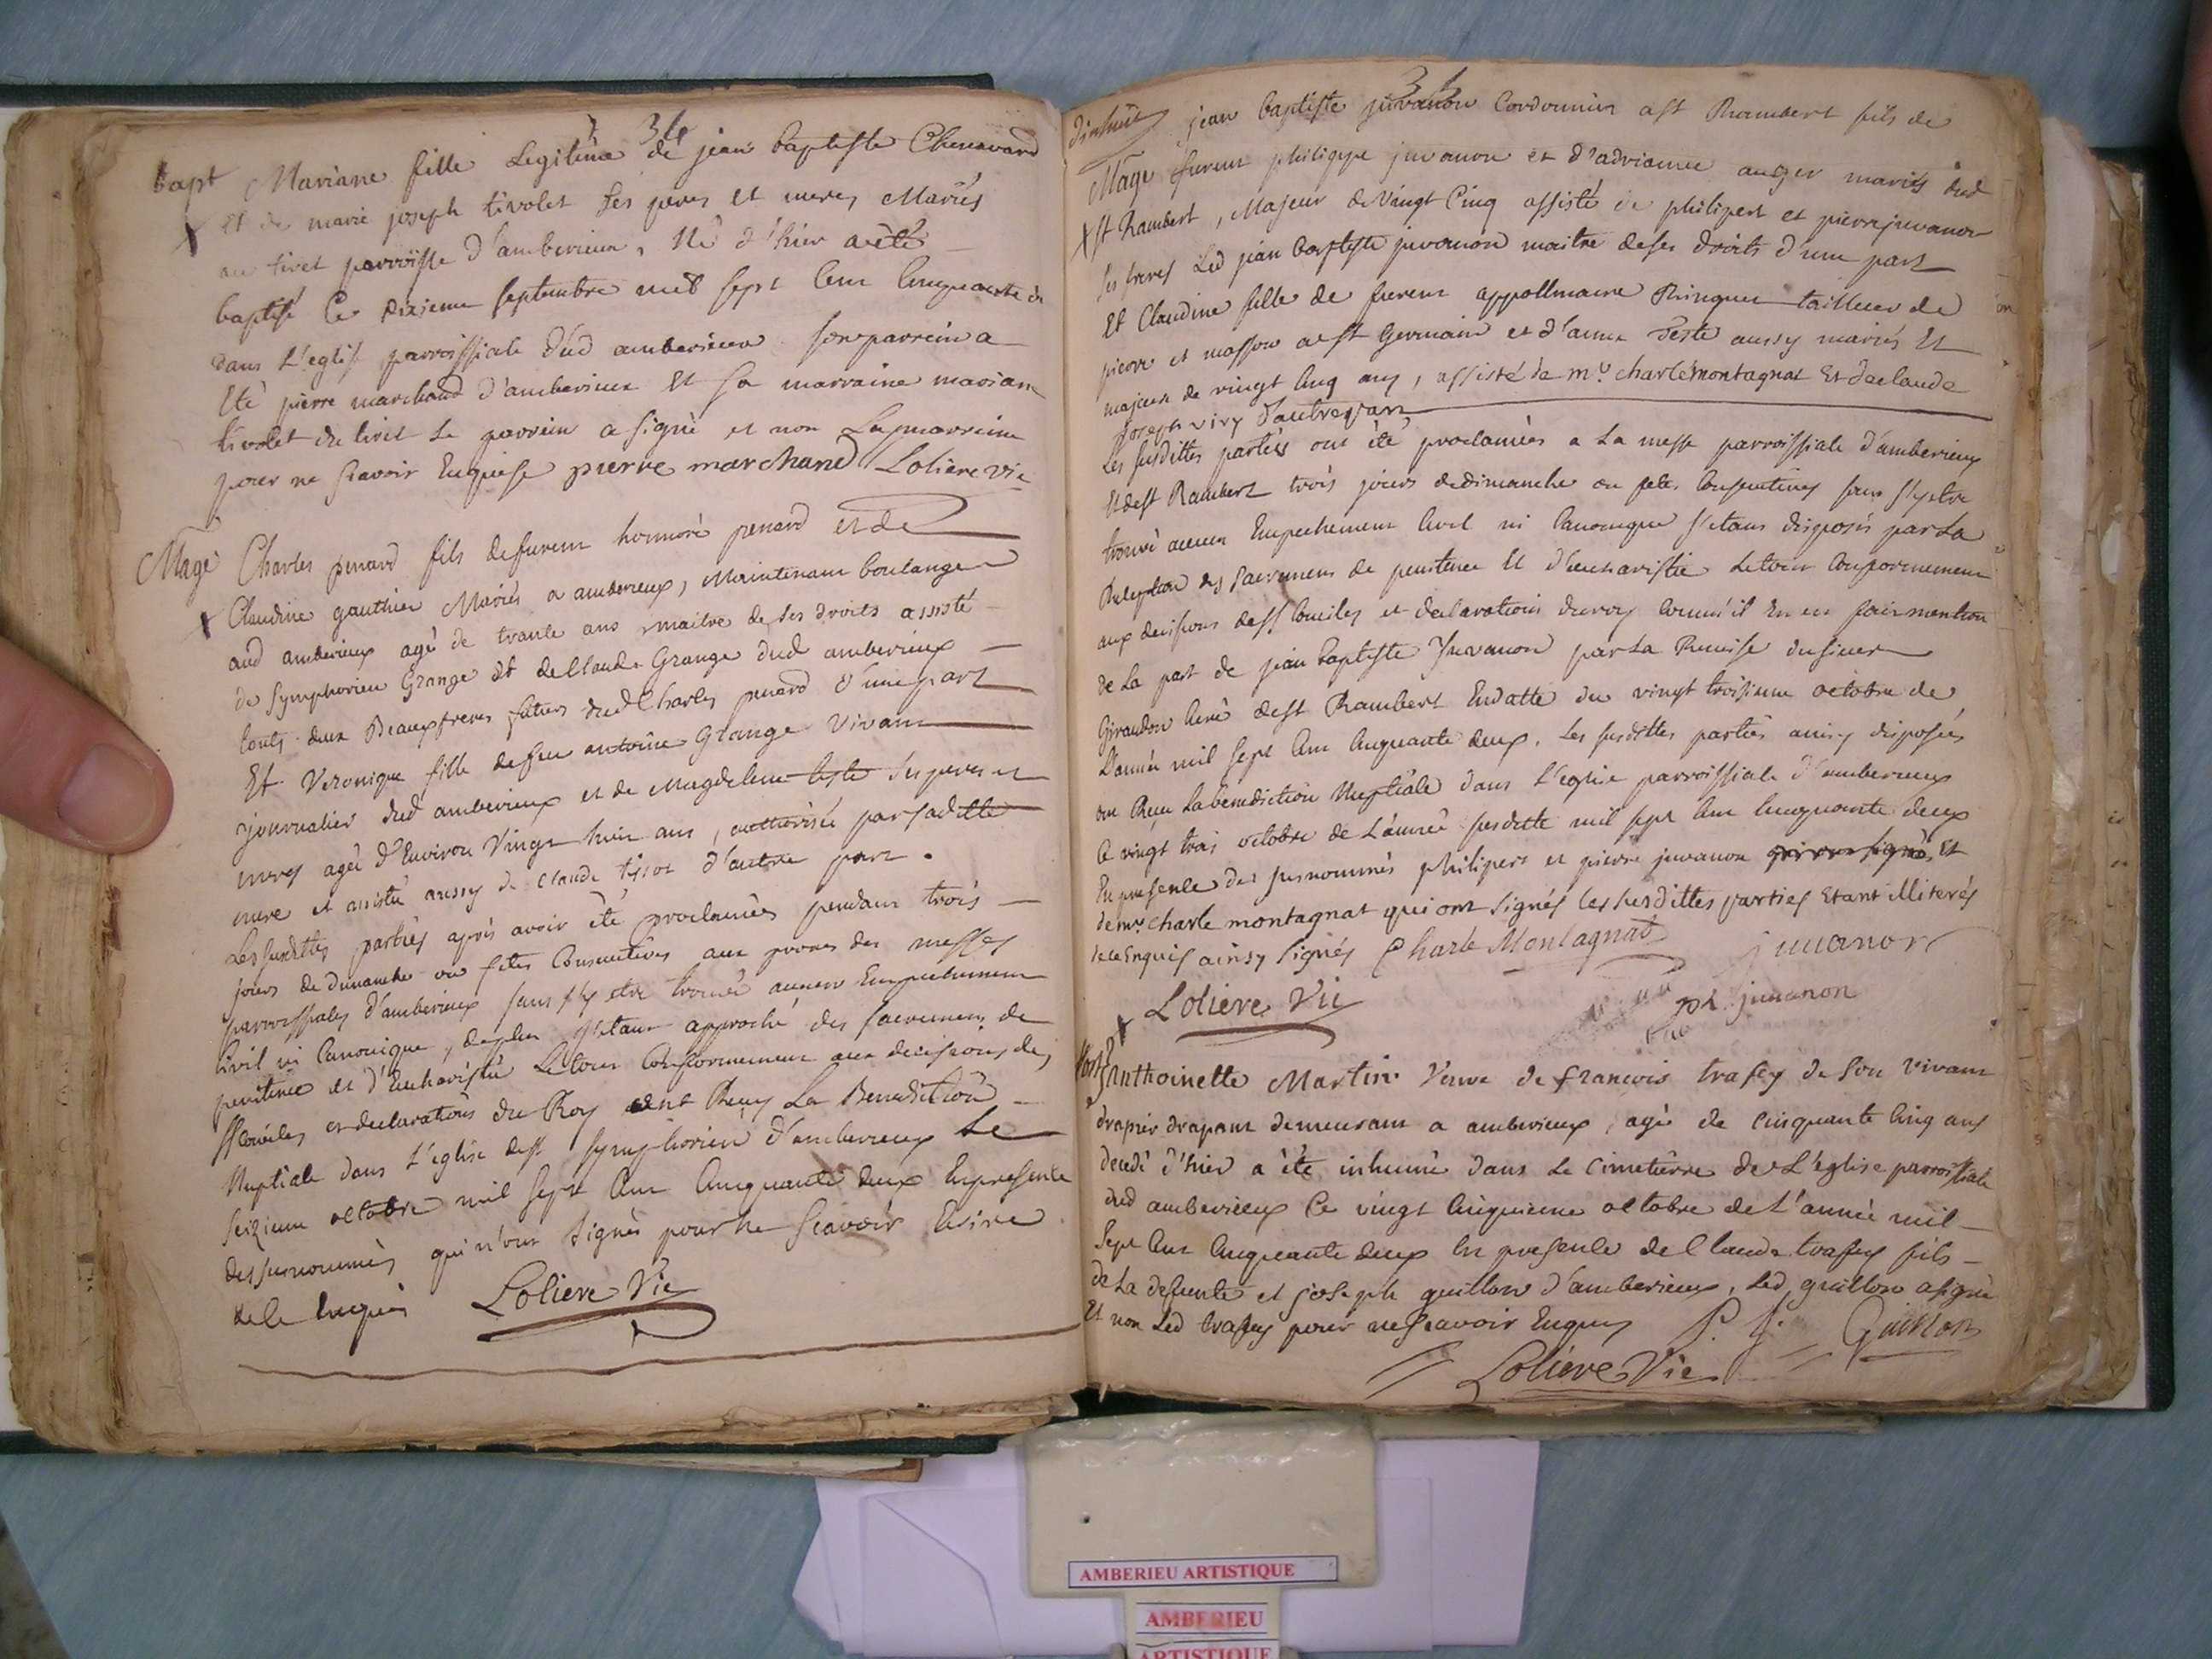 34
Bapt Mariane fille Legitime de jean baptiste Chenavard
et de marie joseph tivolet Ses peres et meres Mariés
au tiret parroisse d'amberieux, Né d'hier a eté
baptisé Ce dixieme septembre mil sept Cent Cinquante
dans L'eglise parroissiale dud amberieux son parrein a
Eté pierre marchand d'amberieux Et sa marraine mariane
tivolet du tiret Le parrein a signé et non La marreine
pour ne scavoir Enquise pierre marchand Loliere Vic
Mage Charles penard fils de furent honnoré penard et de
Claudine gauthier Mariés a amberieux, Maintenant boulanger
aud amberieux agé de trante ans maitre de ses droits assisté
de Symphorien Grange et de Claude Grange dud amberieux
touts deux Beauxfreres futurs dud Charles penard d'une part
Et Veronique fille de feu antoine Grange Vivant
journalier dud amberieux et de Magdeleine teste ses peres et
meres agée d'Environ Vingt huit ans, authorisée par saditte
mere et assistée aussy de Claude tissot d'autre part.
Les susdittes parties aprés avoir été proclamées pendant trois
jours de dimanche ou fetes Consecutives aux prones des messes
parroissiales d'amberieux sans s'y etre trouvé aucun Empechement
Civil ni Canonique, de plus s'etant approché des sacremens de
penitence et d'Eucharistie Le tout Conformement aux decisions des
SS Conciles et declarations du Roy ont Reçu La Benediction
Nuptiale dans L'eglise de st symphorien d'amberieux Le
seizieme octobre mil sept Cent Cinquante deux En presence
des susnommés qui n'ont signés pour ne Scavoir Ecrire
de Ce Enquis Loliere Vic
34
dixhuit jean baptiste juvanon Cordonnier a st Rambert fils de
Mage furent philippe juvanon et d'adrianne auger mariés dud
st Rambert, Majeur de Vingt Cinq assisté de philipert et pierre juvanon
ses freres Led jean baptiste juvanon maitre de ses droits d'une part
Et Claudine fille de furent appollinaire Ringuet tailleur de
pierre et masson a st Germain et d'anne teste aussy mariés Et
majeure de vingt Cinq ans, assisté de mr. charle montagnat Et de claude
joseph viry d'autre part
Les susdittes parties ont été proclamées a La messe parroissiale d'amberieux
Et de st Rambert trois jours de dimanche ou fetes Consecutives sans s'y etre
trouvé aucun Empechement Civil ni Canonique s'etant disposés par La
Reception des Sacremens de penitence Et d'eucharistie Le tout Conformement
aux decisions des SS Conciles et declarations du roy Comm'il En est fait mention
de La part de jean baptiste Juvanon par La Remise du sieur
Giraudon Curé de st Rambert En datte du vingt troisieme octobre de
L'année mil sept Cent Cinquante deux, Les susdittes parties ainsy disposées
ont Reçu La benediction Nuptiale dans L'eglise parroissiale d'amberieux
Ce vingt trois octobre de L'année susditte mil sept Cent Cinquante deux
En presence des susnommés philipert et pierre juvanon qui ont signés Et
de mr. charle montagnat qui ont signés les susdittes parties Etant illiterés
de ce Enquis ainsy signés Charle Montagnat juuanon
Loliere Vic ph. juuanon
Mort Anthoinette Martin Veuve de francois trafey de Son Vivant
drapier drapant demeurant a amberieux, agée de Cinquante Cinq ans
decedé d'hier a été inhumé dans Le Cimetierre de L'eglise parroissiale
dud amberieux Ce vingt Cinquieme octobre de L'année mil
Sept Cent Cinquante deux En presence de Claude trafey fils
de La defunte et joseph guillon d'amberieux, Led guillon a signé
Et non Led trafey pour ne Scavoir Enquis J. Guillon
Loliere Vic
AMBERIEU ARTISTIQUE
AMBERIEU
ARTISTIQUE